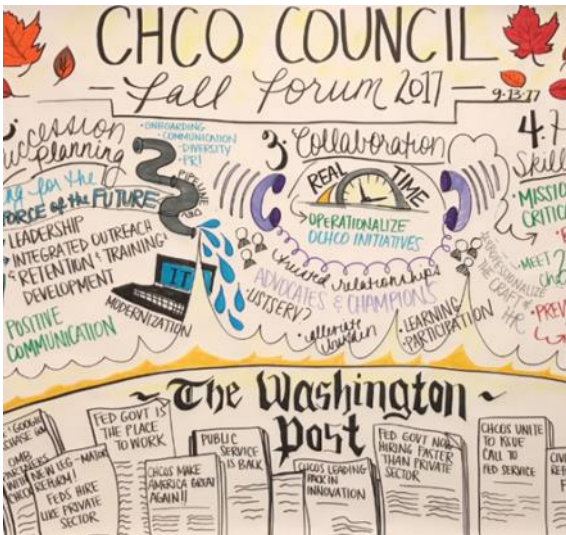 CHCO COUNCIL
- Fall Forum 2017 -
9-13-17
Succession
Planning
for the
FORCE of the FUTURE
LEADERSHIP
INTEGRATED OUTREACH
RETENTION & TRAINING
DEVELOPMENT
POSITIVE
COMMUNICATION
• ONBOARDING
• COMMUNICATION
• DIVERSITY
• PR!
PIPELINE
IT
MODERNIZATION
3. Collaboration
REAL TIME
OPERATIONALIZE
OCHCO INITIATIVES
trusted relationships
ADVOCATES & CHAMPIONS
• LISTSERV?
• LEARNING
PARTICIPATION
4.
Skill
• MISSION
CRITIC
• MEET
PROFESSIONALIZE
THE CRAFT of
HR
• PREV
~ The Washington ~
Post
GOOGL
CHASE
OMB
PARTNERS
WITH
CHCO
NEW LEG-MAJOR
REFORM!
FEDS HIRE
LIKE PRIVATE
SECTOR
FED GOVT IS
THE PLACE
TO WORK
CHCOS MAKE
AMERICA GREAT
AGAIN!!
PUBLIC
SERVICE
IS BACK
CHCOS LEADING
PACK IN
INNOVATION
FED GOVT NOW
HIRING FASTER
THAN PRIVATE
SECTOR
CHCOS UNITE
TO ISSUE
CALL TO
FED SERVICE
CIVI
REF